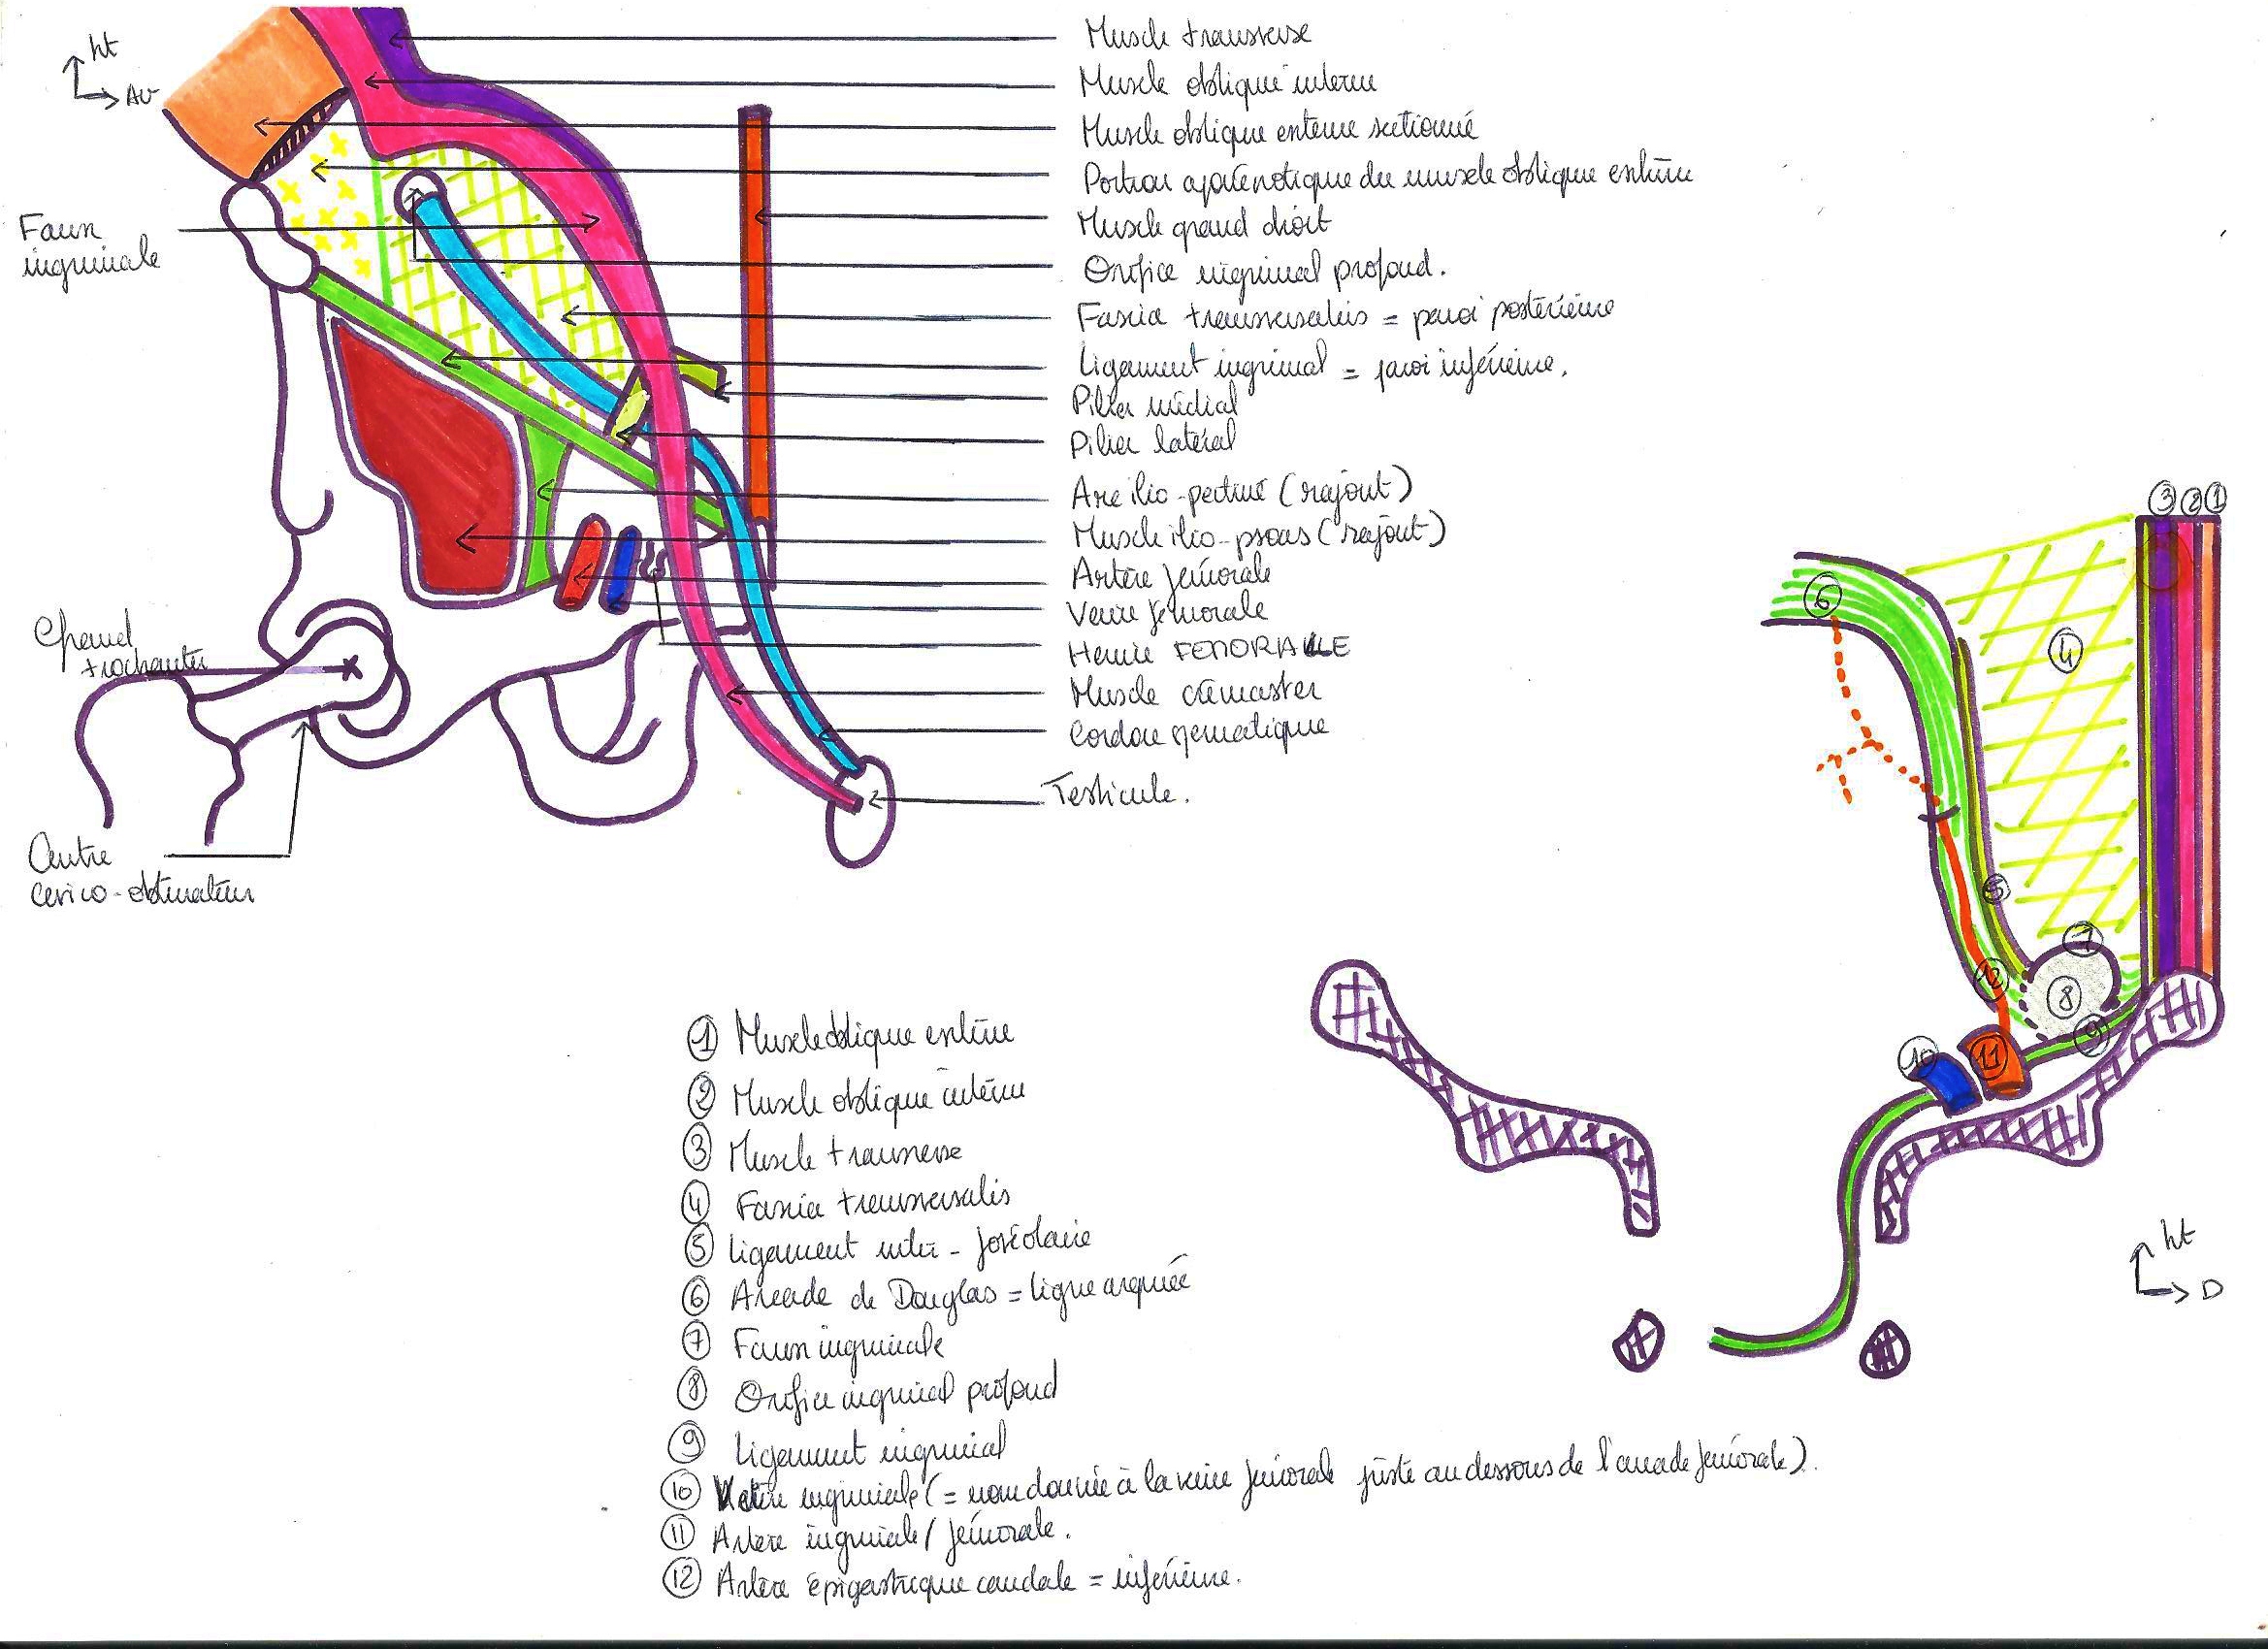 ht
Av
Muscle transverse
Muscle oblique interne
Muscle oblique externe sectionné
Portion aponévrotique du muscle oblique externe
Muscle grand droit
Orifice inguinal profond.
Fascia transversalis = paroi postérieure
Ligament inguinal = paroi inférieure.
Pilier médial
Pilier latéral
Arc ilio-pectiné (rajout)
Muscle ilio-psoas (rajout)
Artère fémorale
Veine fémorale
Hernie FEMORALE
Muscle crémaster
Cordon spermatique
Testicule.
Faux
inguinale
Grand
trochanter
Centre
cervico-obturateur
① Muscle oblique externe
② Muscle oblique interne
③ Muscle transverse
④ Fascia transversalis
⑤ Ligament inter-fovéolaire
⑥ Arcade de Douglas = ligne arquée
⑦ Faux inguinale
⑧ Orifice inguinal profond
⑨ Ligament inguinal
⑩ Veine inguinale (= nom donnée à la veine fémorale juste au dessous de l'arcade fémorale).
⑪ Artère inguinale / fémorale.
⑫ Artère épigastrique caudale = inférieure.
③ ② ①
⑥
④
⑤
⑦
⑫
⑧
⑨
⑩
⑪
ht
D